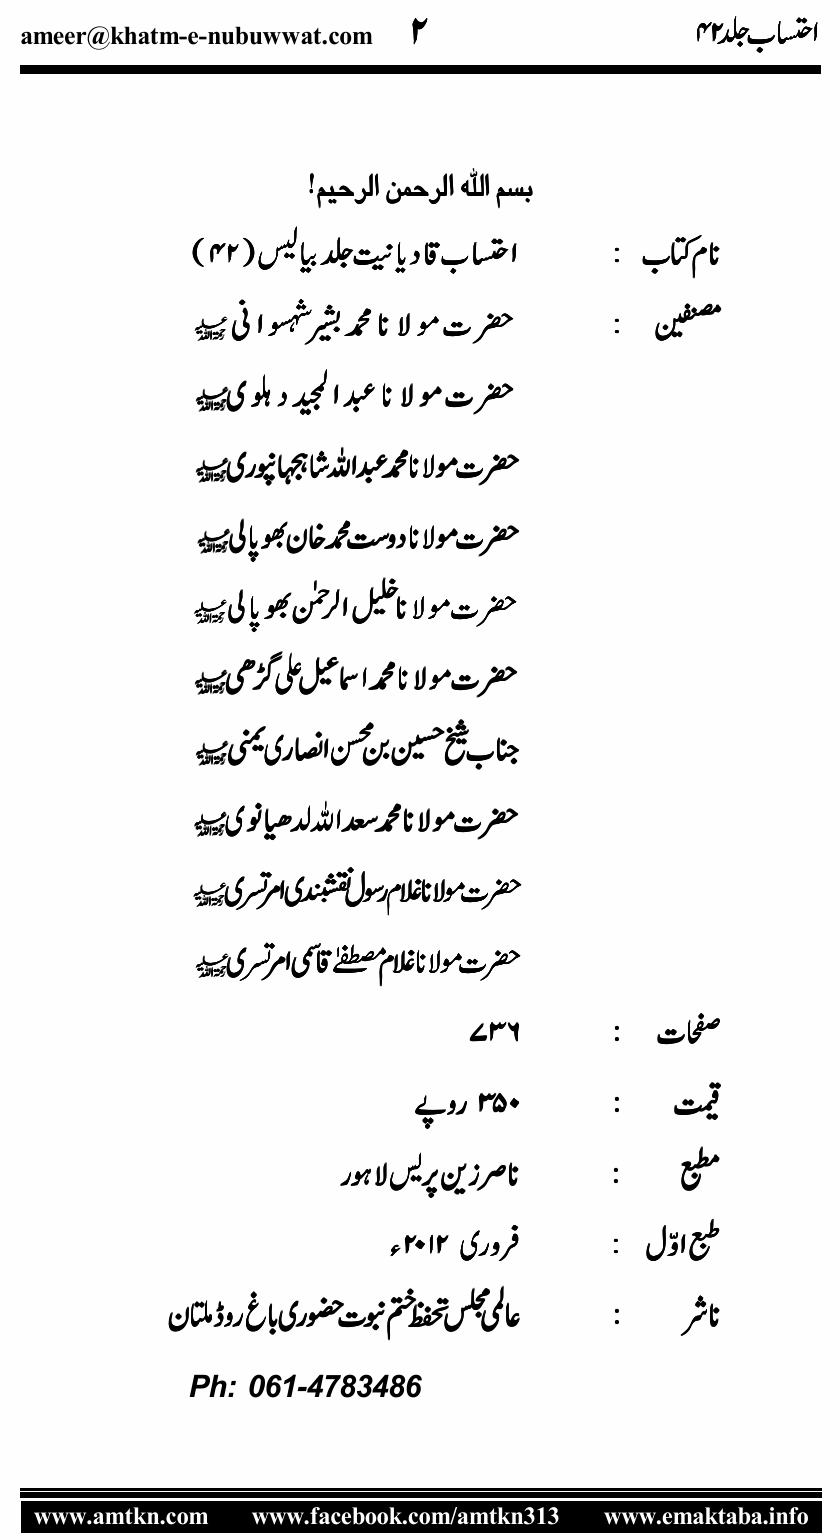 احتساب جلد۴۲ ۲ ameer@khatm-e-nubuwwat.com
بسم اللہ الرحمن الرحیم!
نام کتاب : احتساب قادیانیت جلد بیالیس (۴۲)
مصنفین : حضرت مولانا محمد بشیر شہسوانی رحمۃ اللہ علیہ
حضرت مولانا عبدالمجید دہلوی رحمۃ اللہ علیہ
حضرت مولانا محمد عبداللہ شاہجہانپوری رحمۃ اللہ علیہ
حضرت مولانا دوست محمد خان بھوپالی رحمۃ اللہ علیہ
حضرت مولانا خلیل الرحمٰن بھوپالی رحمۃ اللہ علیہ
حضرت مولانا محمد اسماعیل علی گڑھی رحمۃ اللہ علیہ
جناب شیخ حسین بن محسن انصاری یمنی رحمۃ اللہ علیہ
حضرت مولانا محمد سعد اللہ لدھیانوی رحمۃ اللہ علیہ
حضرت مولانا غلام رسول نقشبندی امرتسری رحمۃ اللہ علیہ
حضرت مولانا غلام مصطفےٰ قاسمی امرتسری رحمۃ اللہ علیہ
صفحات : ۷۳۶
قیمت : ۳۵۰ روپے
مطبع : ناصر زین پریس لاہور
طبع اوّل : فروری ۲۰۱۲ء
ناشر : عالمی مجلس تحفظ ختم نبوت حضوری باغ روڈ ملتان
Ph: 061-4783486
www.amtkn.com www.facebook.com/amtkn313 www.emaktaba.info